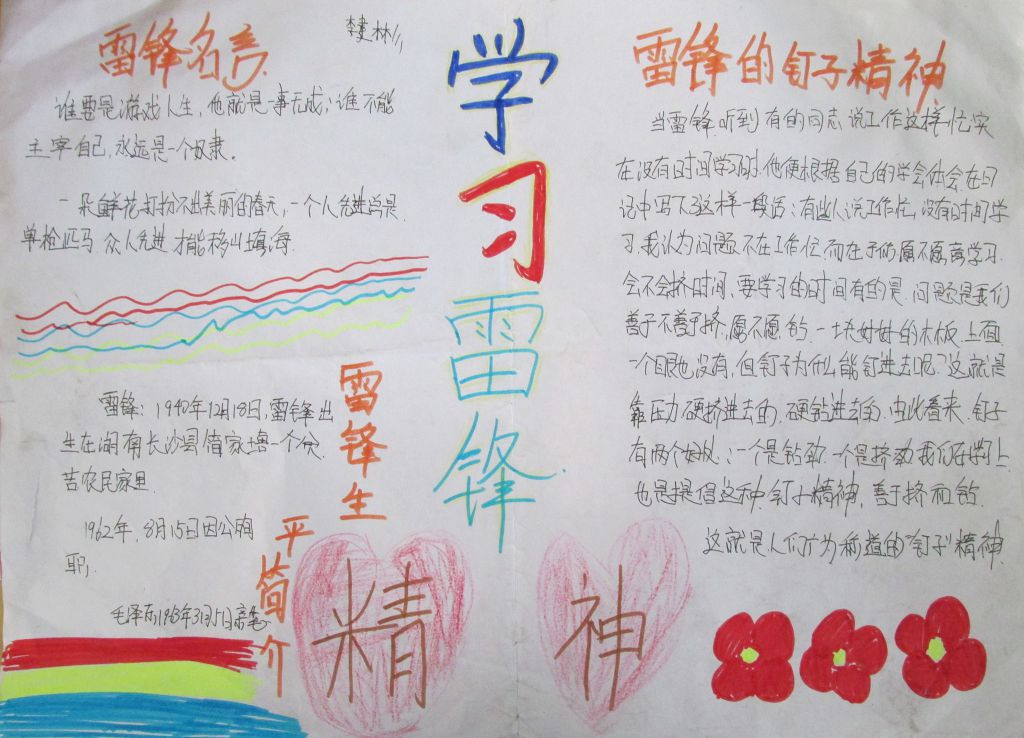 雷锋名言
李建林
谁要是游戏人生，他就是一事无成；谁不能
主宰自己，永远是一个奴隶。
一朵鲜花打扮不出美丽的春天，一个人先进总是
单枪匹马，众人先进才能移山填海
雷锋：1940年12月18日，雷锋出
生在湖南长沙县简家塘一个贫
苦农民家里
1962年，8月15日因公殉
职，
毛泽东1963年3月5日亲笔
雷锋生
平简介
学习雷锋
精神
雷锋的钉子精神
当雷锋听到有的同志说工作这样忙实
在没有时间学习时，他便根据自己的学会体会在日
记中写下这样一段话：有些人说工作忙，没有时间学
习，我认为问题不在工作忙，而在于你愿不愿意学习，
会不会挤时间，要学习的时间有的是，问题是我们
善于不善于挤，愿不愿钻，一块好好的木板，上面
一个眼也没有，但钉子为什么能钉进去呢？这就是
靠压力硬挤进去的，硬钻进去的，由此看来，钉子
有两个好处：一个是钻劲，一个是挤劲，我们在学习上
也是提倡这种钉子精神，善于挤和钻，
这就是人们广为称道的“钉子”精神